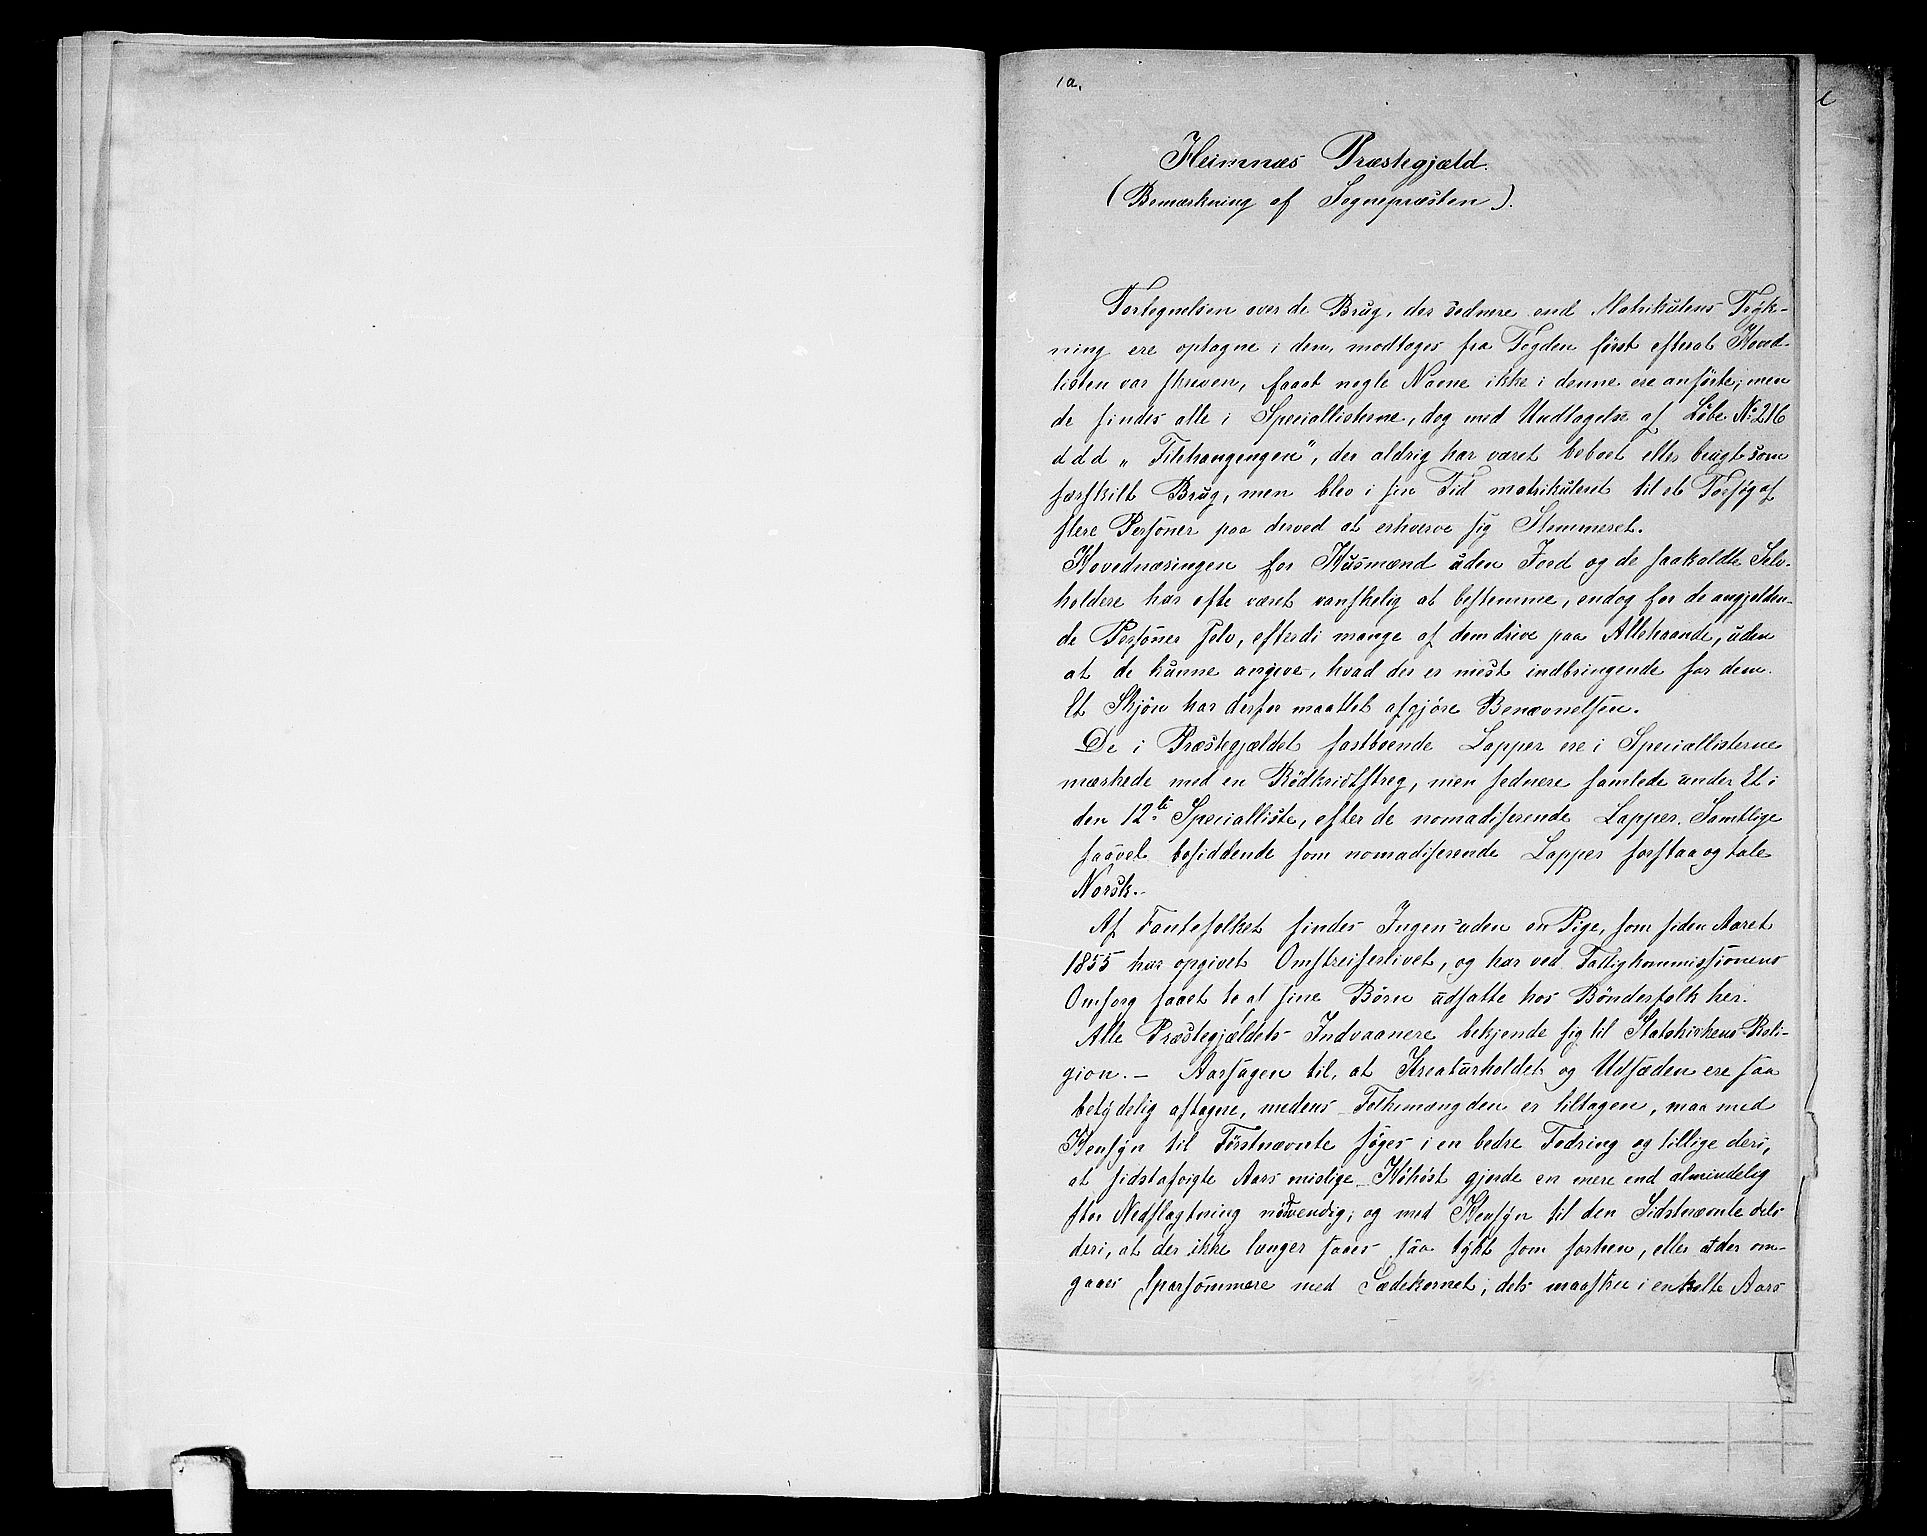 1a.
Heimnæs Præstegjæld.
(Bemærkning af Sognepræsten).
Fortegnelsen over de Brug, der sednere end Matrikulens Tryk-
ning ere optagne i den, modtoges fra Fogden først efterat Hoved-
listen var skreven, saaat nogle Navne ikke i denne ere anførte; men
de findes alle i Speciallisterne, dog med Undtagelse af Løbe No 216
d d d „ Tilhængengen", der aldrig har været beboet eller brugt som
særskilt Brug, men blev i sin Tid matrikuleret til et Forsøg af
flere Personer paa derved at erhverve sig Stemmeret.
Hovednæringen for Husmænd uden Jord og de saakaldte Selv-
holdere har ofte været vanskelig at bestemme, endog for de angjelden-
de Personer selv, efterdi mange af dem drive paa Allehaande, uden
at de kunne angive, hvad der er mest indbringende for dem.
Et Skjøn har derfor maattet afgjøre Benævnelsen.
De i Præstegjældet fastboende Lapper ere i Speciallisterne
mærkede med en Rödkridtstreg, men sednere samlede under Et i
den 12te Specialliste, efter de nomadiserende Lapper. Samtlige
saavel bofiddende som nomadiserende Lapper forstaa og tale
Norsk.
Af Fantefolket findes Ingen uden en Pige, som siden Aaret
1855 har opgivet Omstreiferlivet, og har ved Fattigkommissionens
Omsorg faaet to af sine Børn udsatte hos Bönderfolk her.
Alle Præstegjældets Indvaanere bekjende sig til Statskirkens Reli-
gion. — Aarsagen til, at Kreaturholdet og Udsæden ere saa
betydelig aftagne, medens Folkemængden er tiltagen, maa med
Hensyn til Førstnævnte søges i en bedre Fodring og tillige deri,
at sidstafvigte Aars mislige Høhøst gjorde en mere end almindelig
stor Nedslagtning nødvendig; og med Hensyn til den Sidstnævnte dels
deri, at der ikke længer saaes saa tykt som forhen, eller at der om-
gaaes sparsommere med Sædekornet, dels maaskee i enkelte Aars